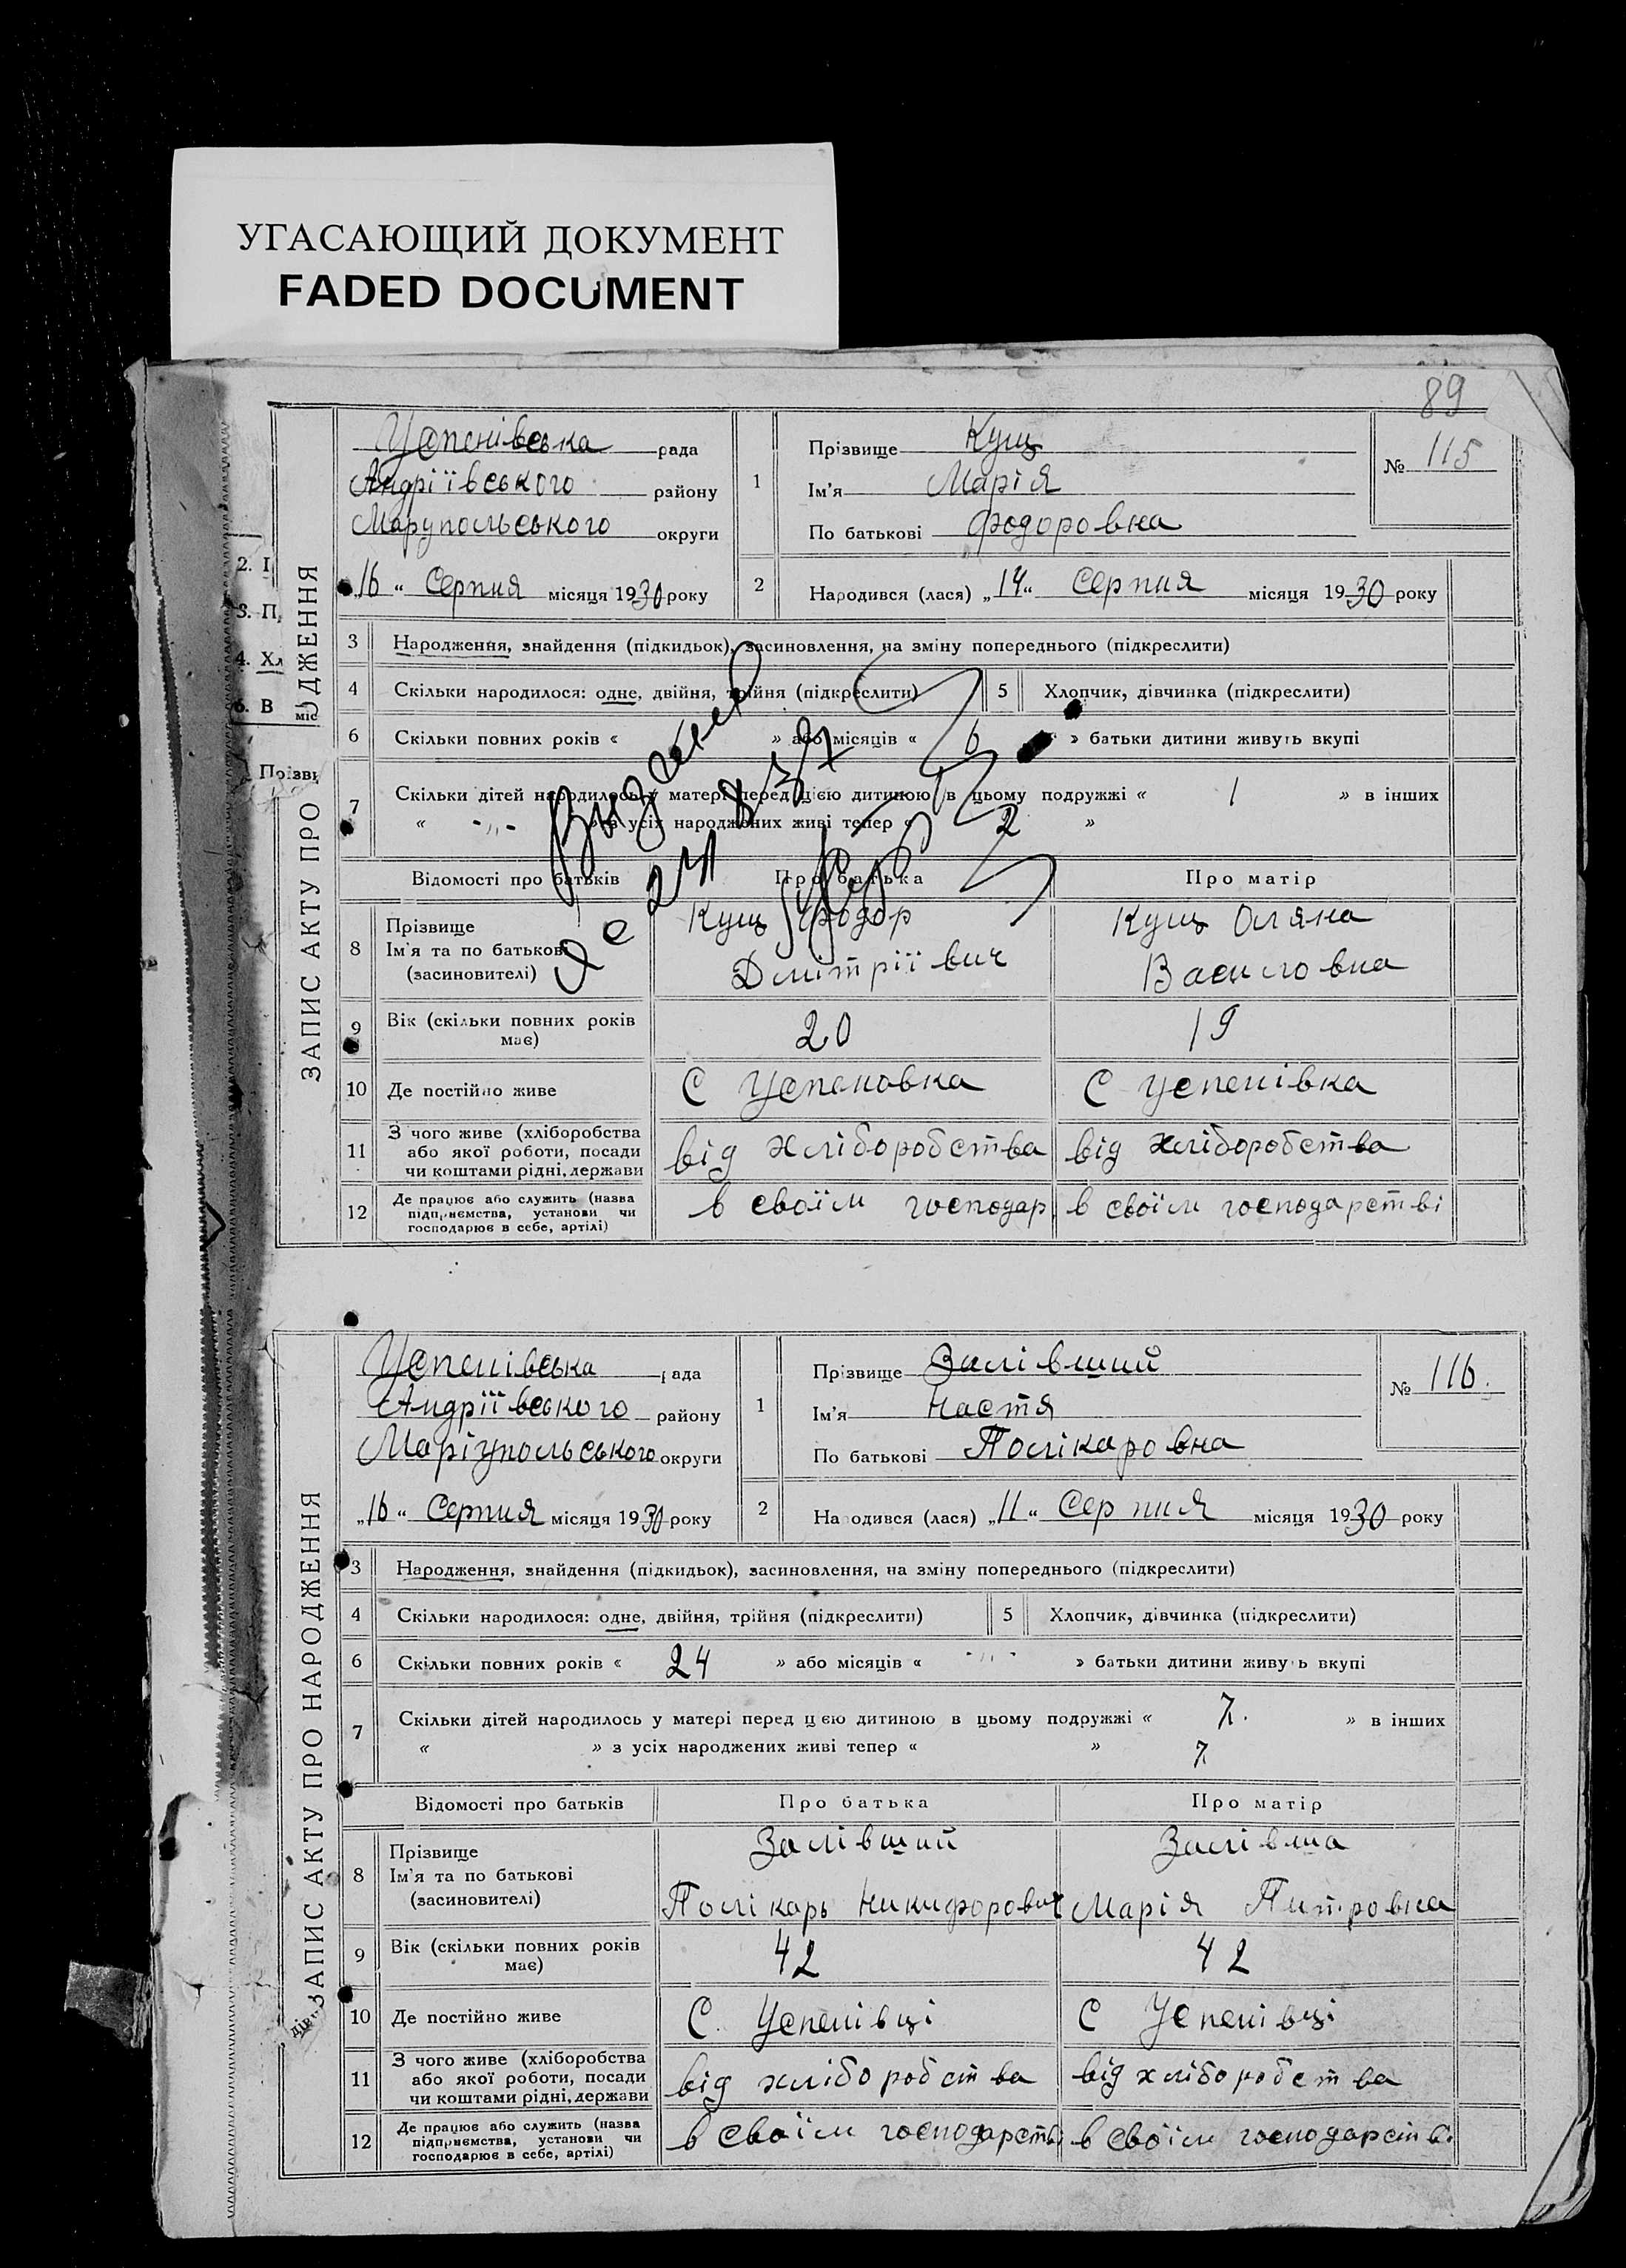 УГАСАЮЩИЙ ДОКУМЕНТ
FADED DOCUMENT
89
ЗАПИС АКТУ ПРО
ОДЖЕННЯ
2. І
3. П
4. Хл
6. В
міс
Прізви
Успенівська рада
Андріївського району
Марупольського округи
16 " Серпня місяця 1930 року
1 Прізвище Кущ
Ім'я Марія
По батькові Федоровна
№ 115
2 Народився (лася) „14" Серпня місяця 1930 року
3 Народження, знайдення (підкидьок), засиновлення, на зміну попереднього (підкреслити)
4 Скільки народилося: одне, двійня, трійня (підкреслити) 5 Хлопчик, дівчинка (підкреслити)
6 Скільки повних років « » або місяців « 6 » батьки дитини живуть вкупі
7 Скільки дітей народилось у матері перед цією дитиною в цьому подружжі « 1 » в інших
« -"- » з усіх народжених живі тепер « 2 »
24 8 37
Відомості про батьків Про батька Про матір
8 Прізвище
Ім'я та по батькові
(засиновителі)
Кущ Федор
Дмітріївич
Кущ Оляна
Василовна
9 Вік (скільки повних років має) 20 19
10 Де постійно живе С Успеновка С Успенівка
11 З чого живе (хліборобства
або якої роботи, посади
чи коштами рідні, держави
від хліборобства від хліборобства
12 Де працює або служить (назва
підприємства, установи чи
господарює в себе, артілі)
в своїм господар в своїм господарстві
ЗАПИС АКТУ ПРО НАРОДЖЕННЯ
дів
Успенівська рада
Андріївського району
Маріупольського округи
„16" Серпня місяця 1930 року
1 Прізвище Залівший
Ім'я Настя
По батькові Полікаровна
№ 116.
2 Народився (лася) „11" Серпня місяця 1930 року
3 Народження, знайдення (підкидьок), засиновлення, на зміну попереднього (підкреслити)
4 Скільки народилося: одне, двійня, трійня (підкреслити) 5 Хлопчик, дівчинка (підкреслити)
6 Скільки повних років « 24 » або місяців « -"- » батьки дитини живуть вкупі
7 Скільки дітей народилось у матері перед цією дитиною в цьому подружжі « 7. » в інших
« » з усіх народжених живі тепер « » 7
Відомості про батьків Про батька Про матір
8 Прізвище
Ім'я та по батькові
(засиновителі)
Залівший
Полікарь Никифорович
Залівша
Марія Питровна
9 Вік (скільки повних років має) 42 42
10 Де постійно живе С. Успенівці С Успенівці
11 З чого живе (хліборобства
або якої роботи, посади
чи коштами рідні, держави
від хліборобства від хліборобства
12 Де працює або служить (назва
підприємства, установи чи
господарює в себе, артілі)
в своїм господарстві в своїм господарстві